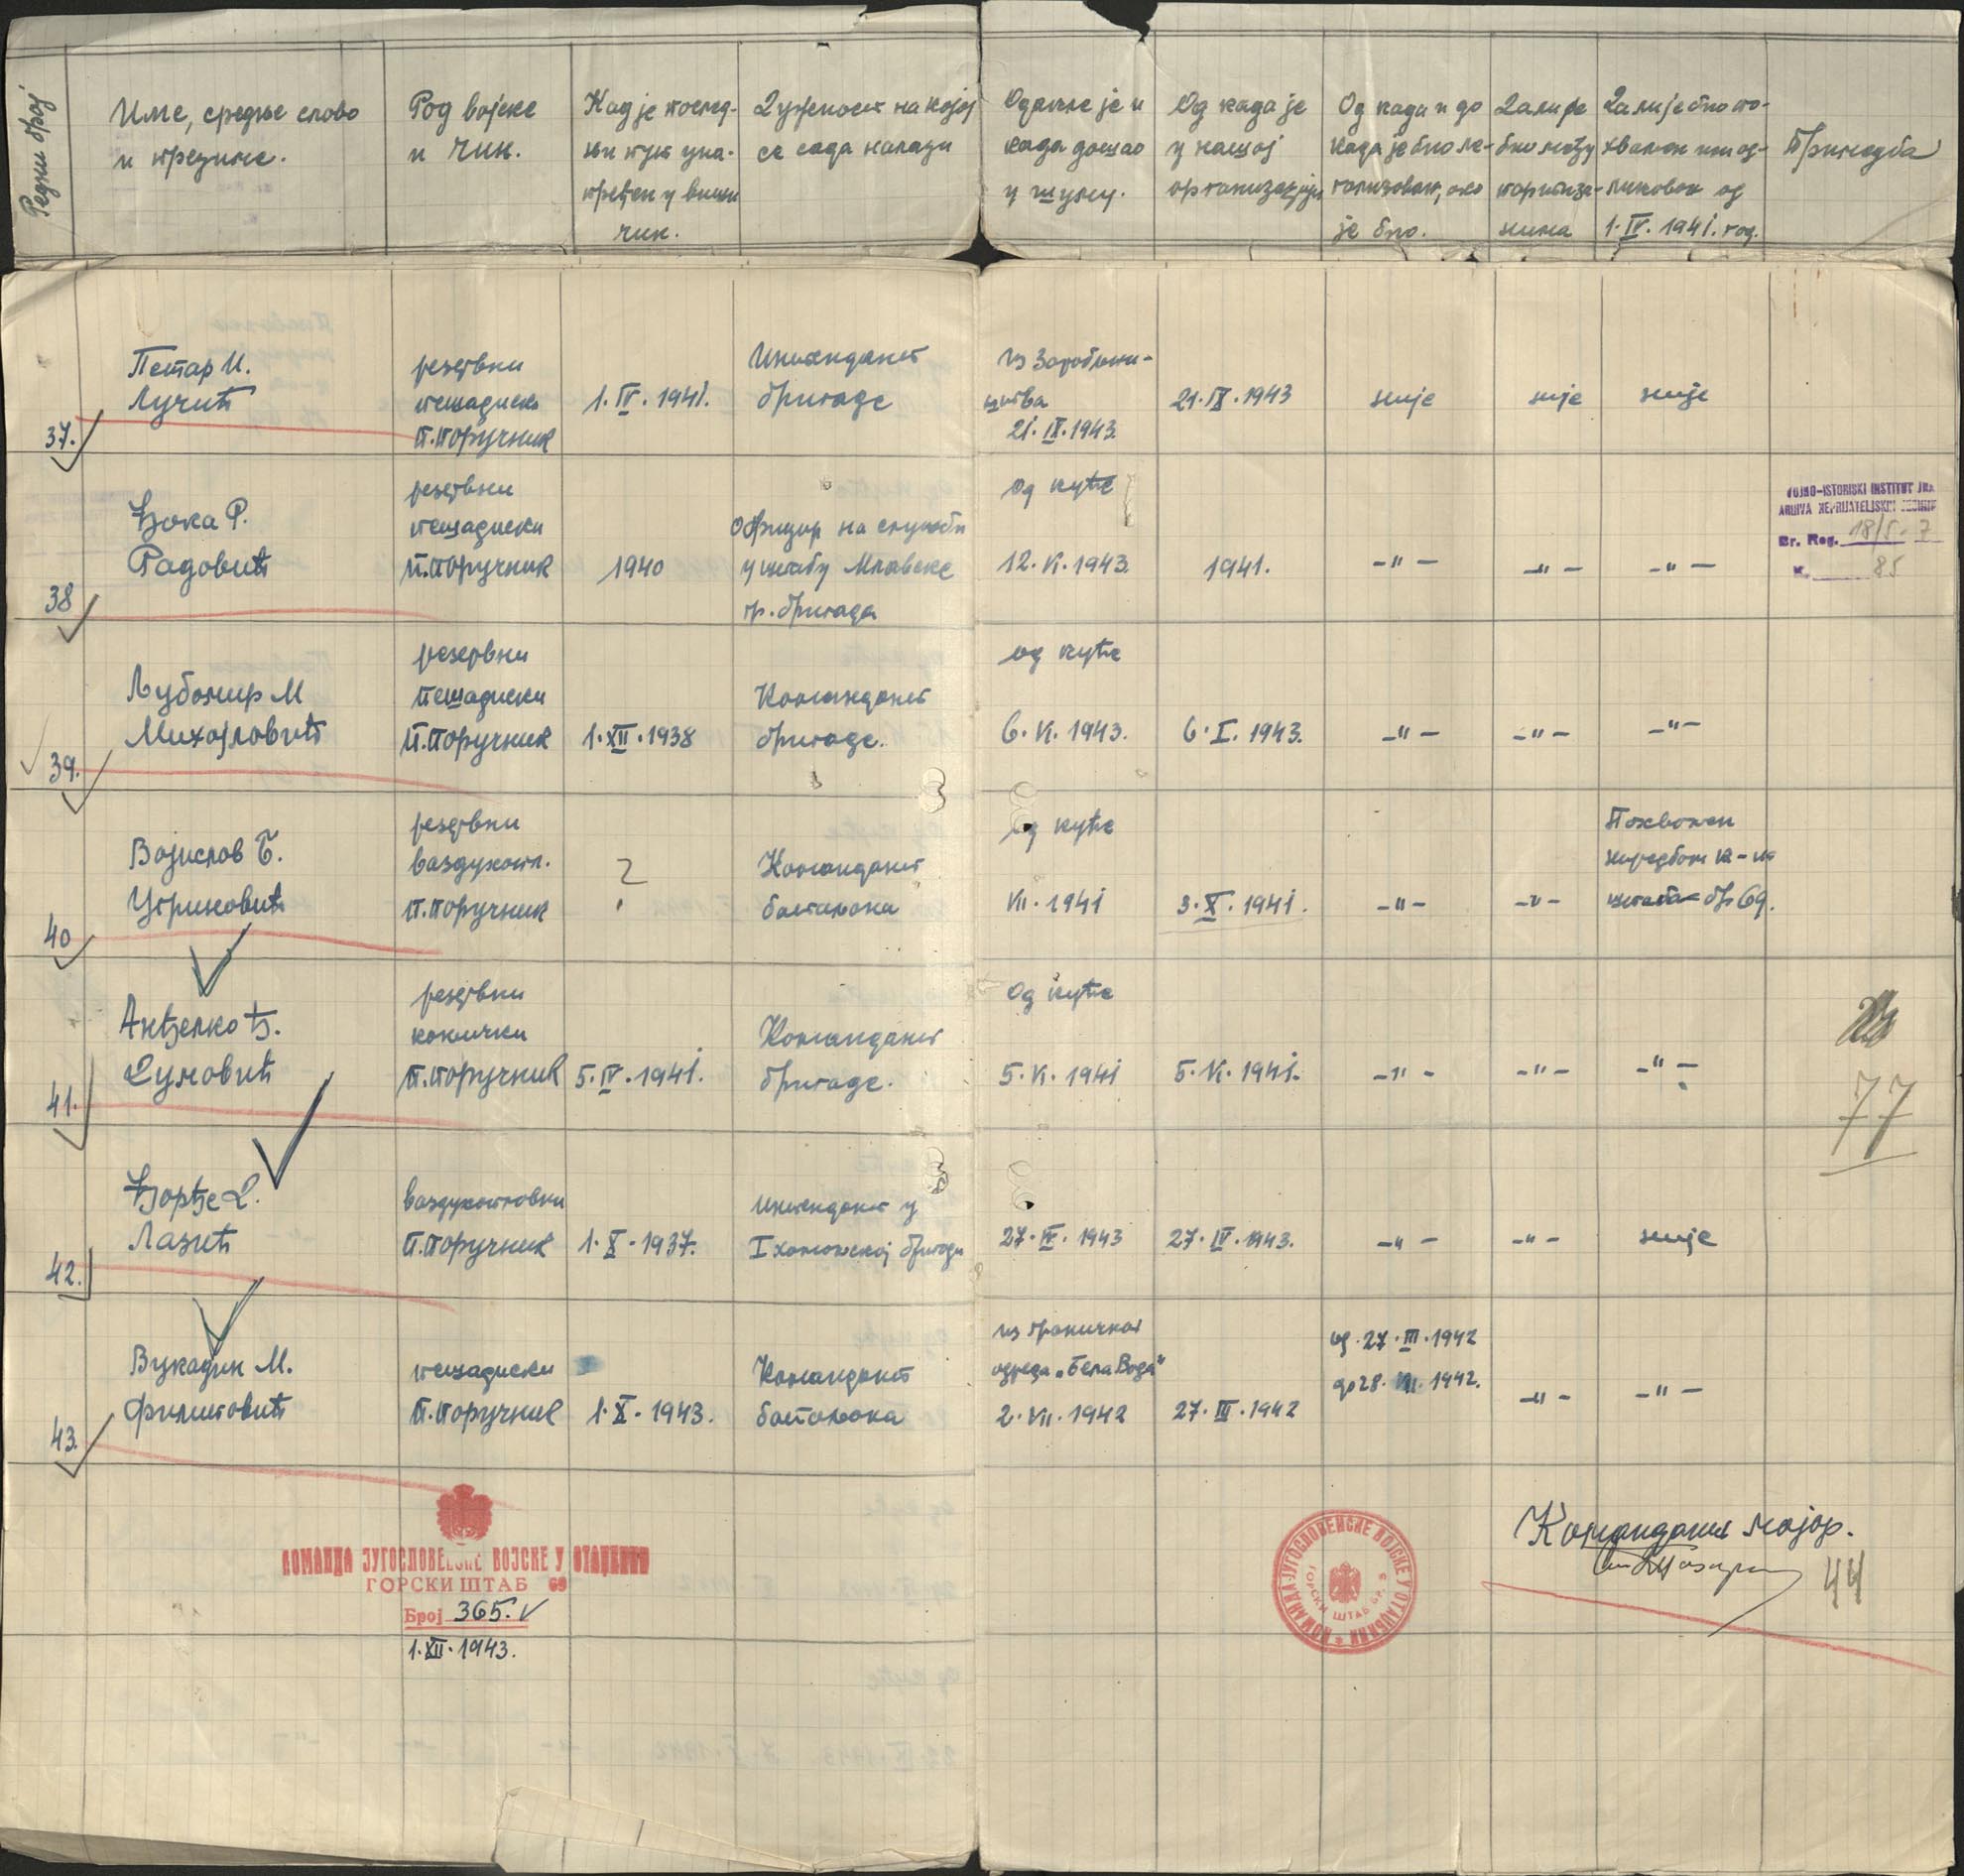 Редни број
Име, средње слово
и презиме.
Род војске
и чин.
Кад је послед-
њи пут уна-
пређен у виши
чин.
Дужност на којој
се сада налази
Одакле је и
када дошао
у шуму.
Од када је
у нашој
организацији
Од када и до
када је био ле-
гализован, ако
је био.
Да ли је
био међу
партиза-
нима
Да ли је био по-
хваљен или од-
ликован од
1.IV.1941. год.
Примедба
37.
Петар И.
Лучић
резервни
пешадиски
п.поручник
1.IV.1941.
Интендант
бригаде
Из заробљени-
штва
21.IX.1943.
21.IX.1943
није
није
није
38
Ђока Р.
Радовић
резервни
пешадиски
п.поручник
1940
Официр на служби
у штабу Млавске
гр. бригада
од куће
12.VI.1943.
1941.
-"-
-"-
-"-
VOJNO-ISTORISKI INSTITUT JNA
ARHIVA NEPRIJATELJSKIH JEDINICA
Br. Reg. 18/5-7
K. 85
39.
Љубомир М
Михајловић
резервни
пешадиски
п.поручник
1.XII.1938
Командант
бригаде.
од куће
6.VI.1943.
6.I.1943.
-"-
-"-
-"-
40
Војислав Б.
Угриновић
резервни
ваздухопл.
п.поручник
?
Командант
батаљона
од куће
VII.1941
3.X.1941.
-"-
-"-
Похваљен
наредбом
штаба бр 69.
41.
Анђелко Ђ.
Думовић
резервни
коњички
п.поручник
5.IV.1941.
Командант
бригаде.
Од куће
5.VI.1941
5.VI.1941.
-"-
-"-
-"-
77
42.
Ђорђе Д.
Лазић
ваздухопловни
п.поручник
1.X.1937.
Интендант у
I хомољској бригади
27.IV.1943
27.IV.1943.
-"-
-"-
није
43.
Вукадин М.
Филиповић
пешадиски
п.поручник
1.X.1943.
Командант
батаљона
из граничног
одреда „Бела Вода"
2.VII.1942
27.III.1942
од 27.III.1942
до 28.VII.1942.
-"-
-"-
КОМАНДА ЈУГОСЛОВЕНСКЕ ВОЈСКЕ У ОТАЏБИНИ
ГОРСКИ ШТАБ 69
Број 365.
1.XII.1943.
КОМАНДА ЈУГОСЛОВЕНСКЕ ВОЈСКЕ У ОТАЏБИНИ
ГОРСКИ ШТАБ БР.
Командант мајор.
44